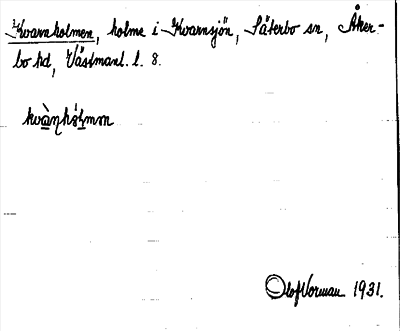 Kvarnholmen, holme i Kvarnsjön, Säterbo sn, Åker-
bo hd, Västmanl. l. 8.
kvànhólmɘn
Olof Norman 1931.